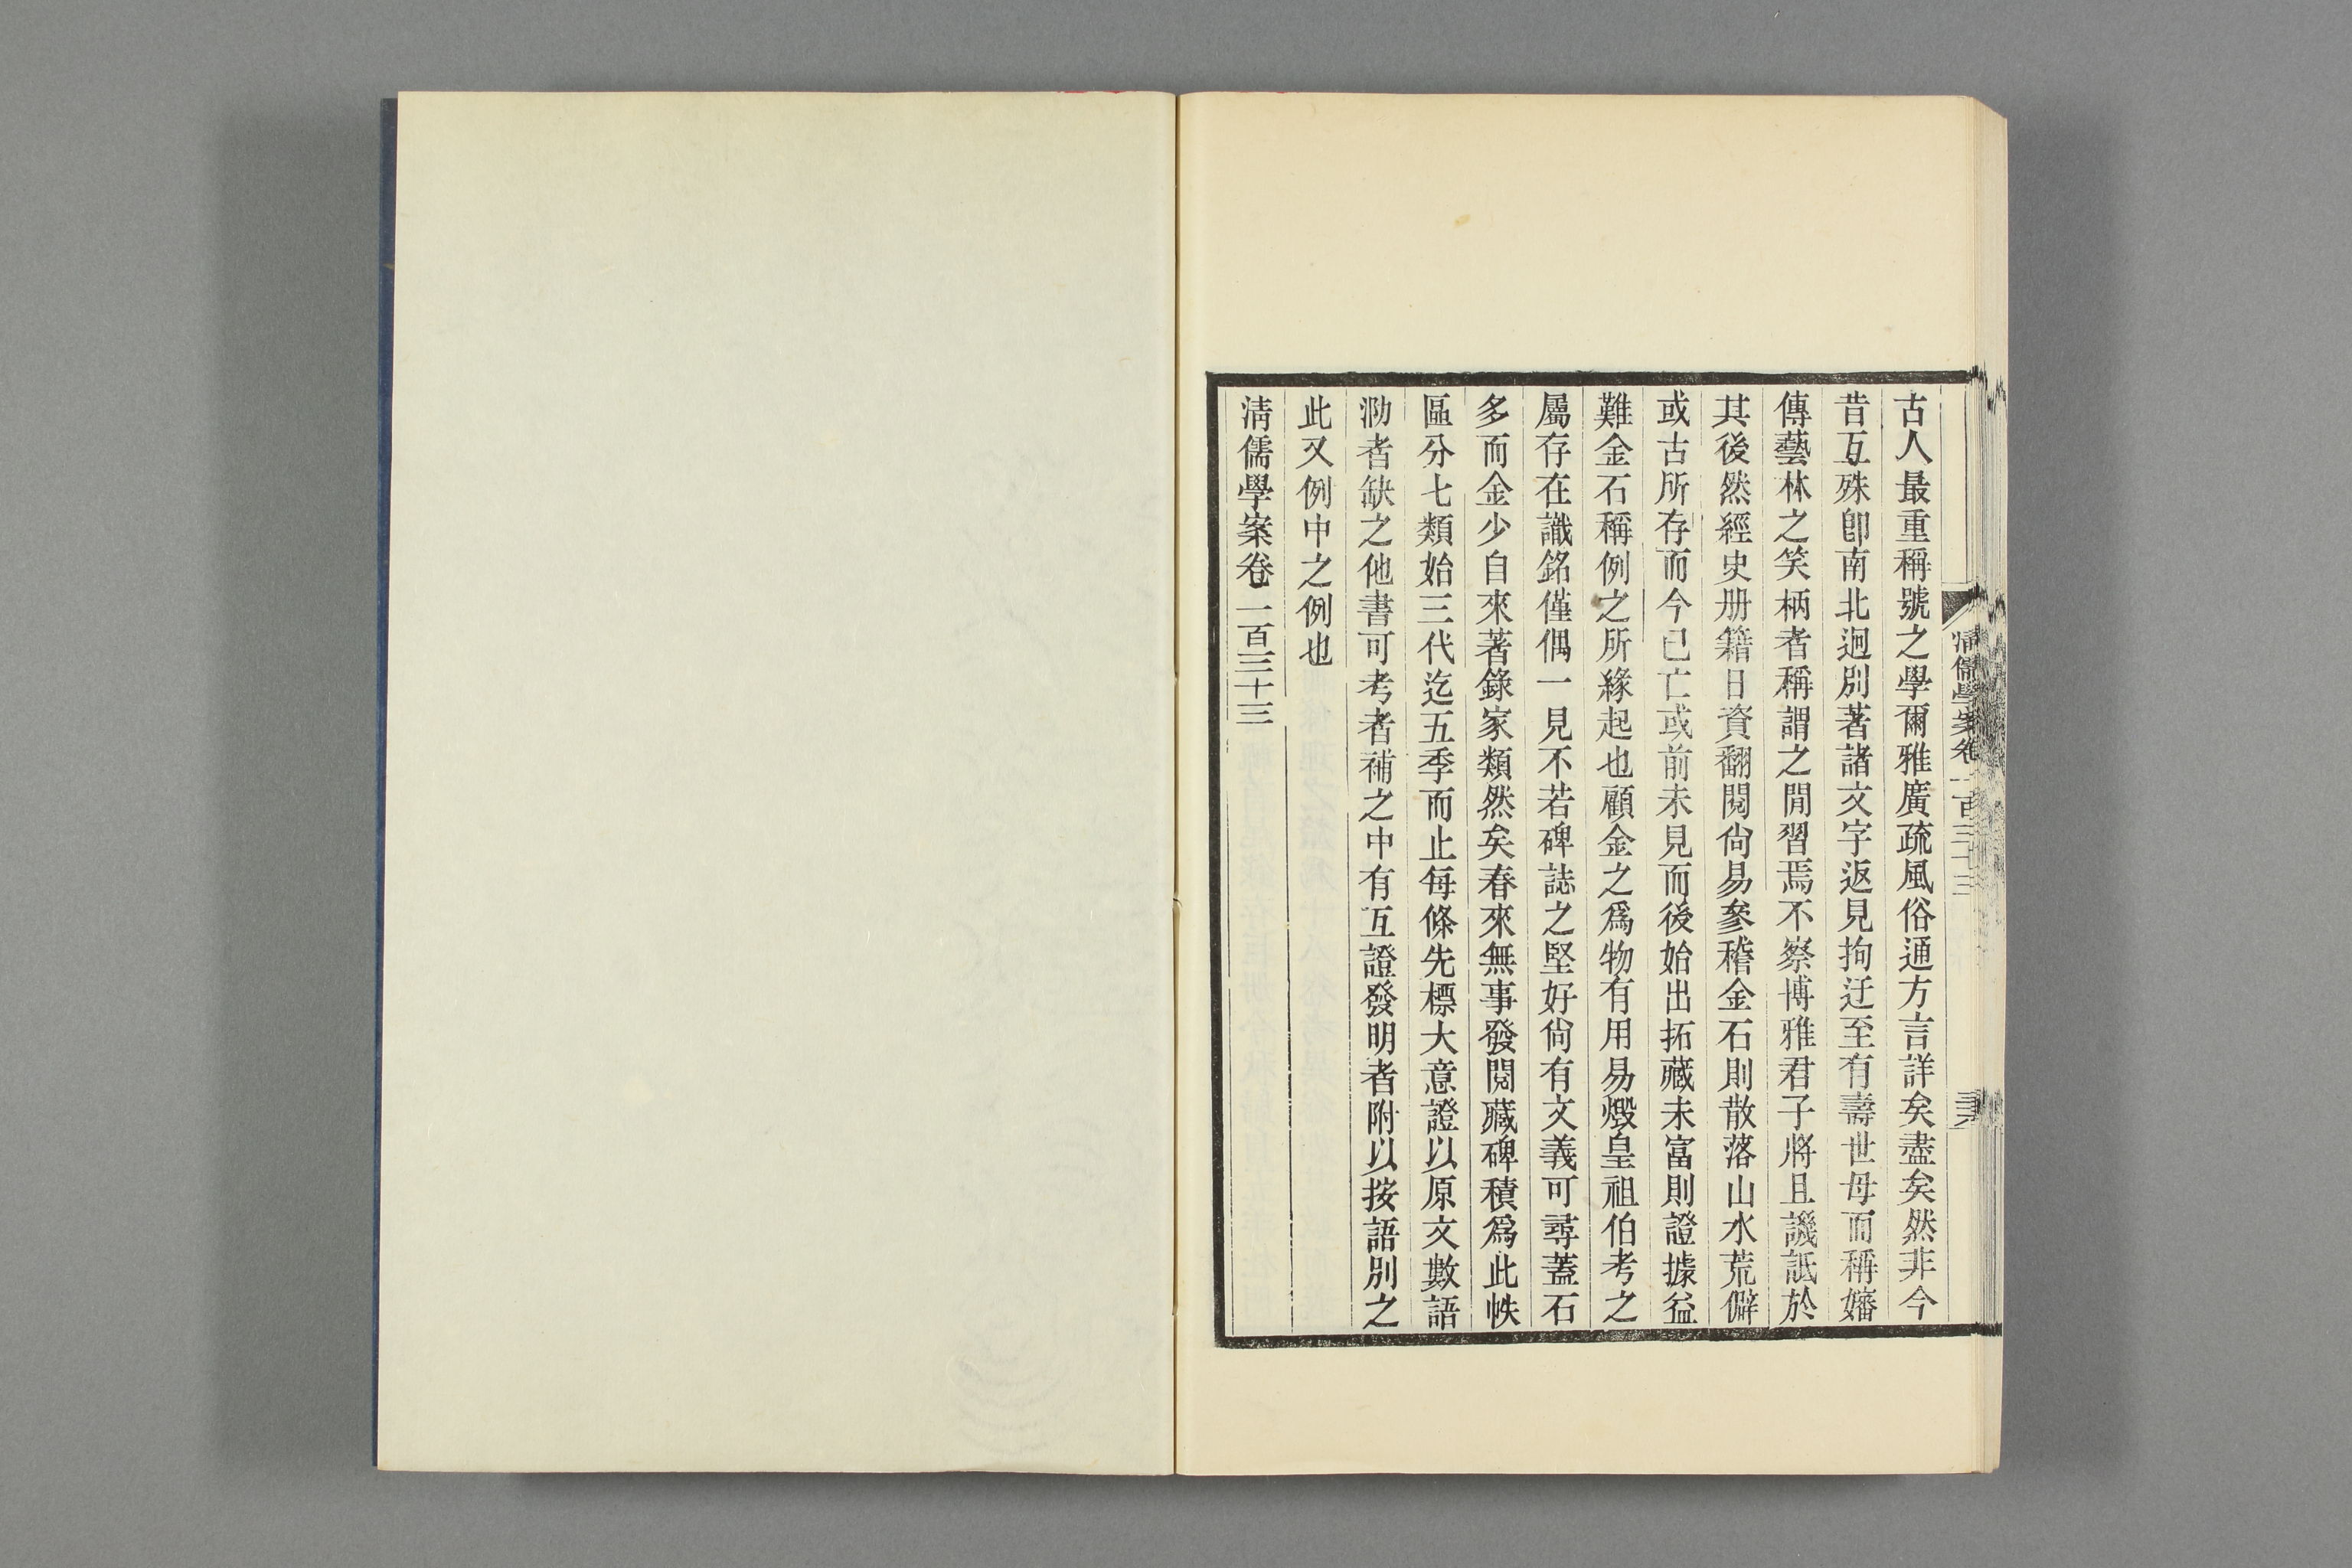 清儒學案卷一百三十三
古人最重稱號之學爾雅廣疏風俗通方言詳矣盡矣然非今
昔互殊卽南北迥別著諸文字返見拘迂至有壽世母而稱嬸
傳藝林之笑柄者稱謂之閒習焉不察博雅君子將且譏詆於
其後然經史册籍日資翻閱尙易參稽金石則散落山水荒僻
或古所存而今已亡或前未見而後始出拓藏未富則證據益
難金石稱例之所緣起也顧金之爲物有用易燬皇祖伯考之
屬存在識銘僅偶一見不若碑誌之堅好尙有文義可尋蓋石
多而金少自來著錄家類然矣春來無事發閱藏碑積爲此帙
區分七類始三代迄五季而止每條先標大意證以原文數語
泐者缺之他書可考者補之中有互證發明者附以按語別之
此又例中之例也
清儒學案卷一百三十三